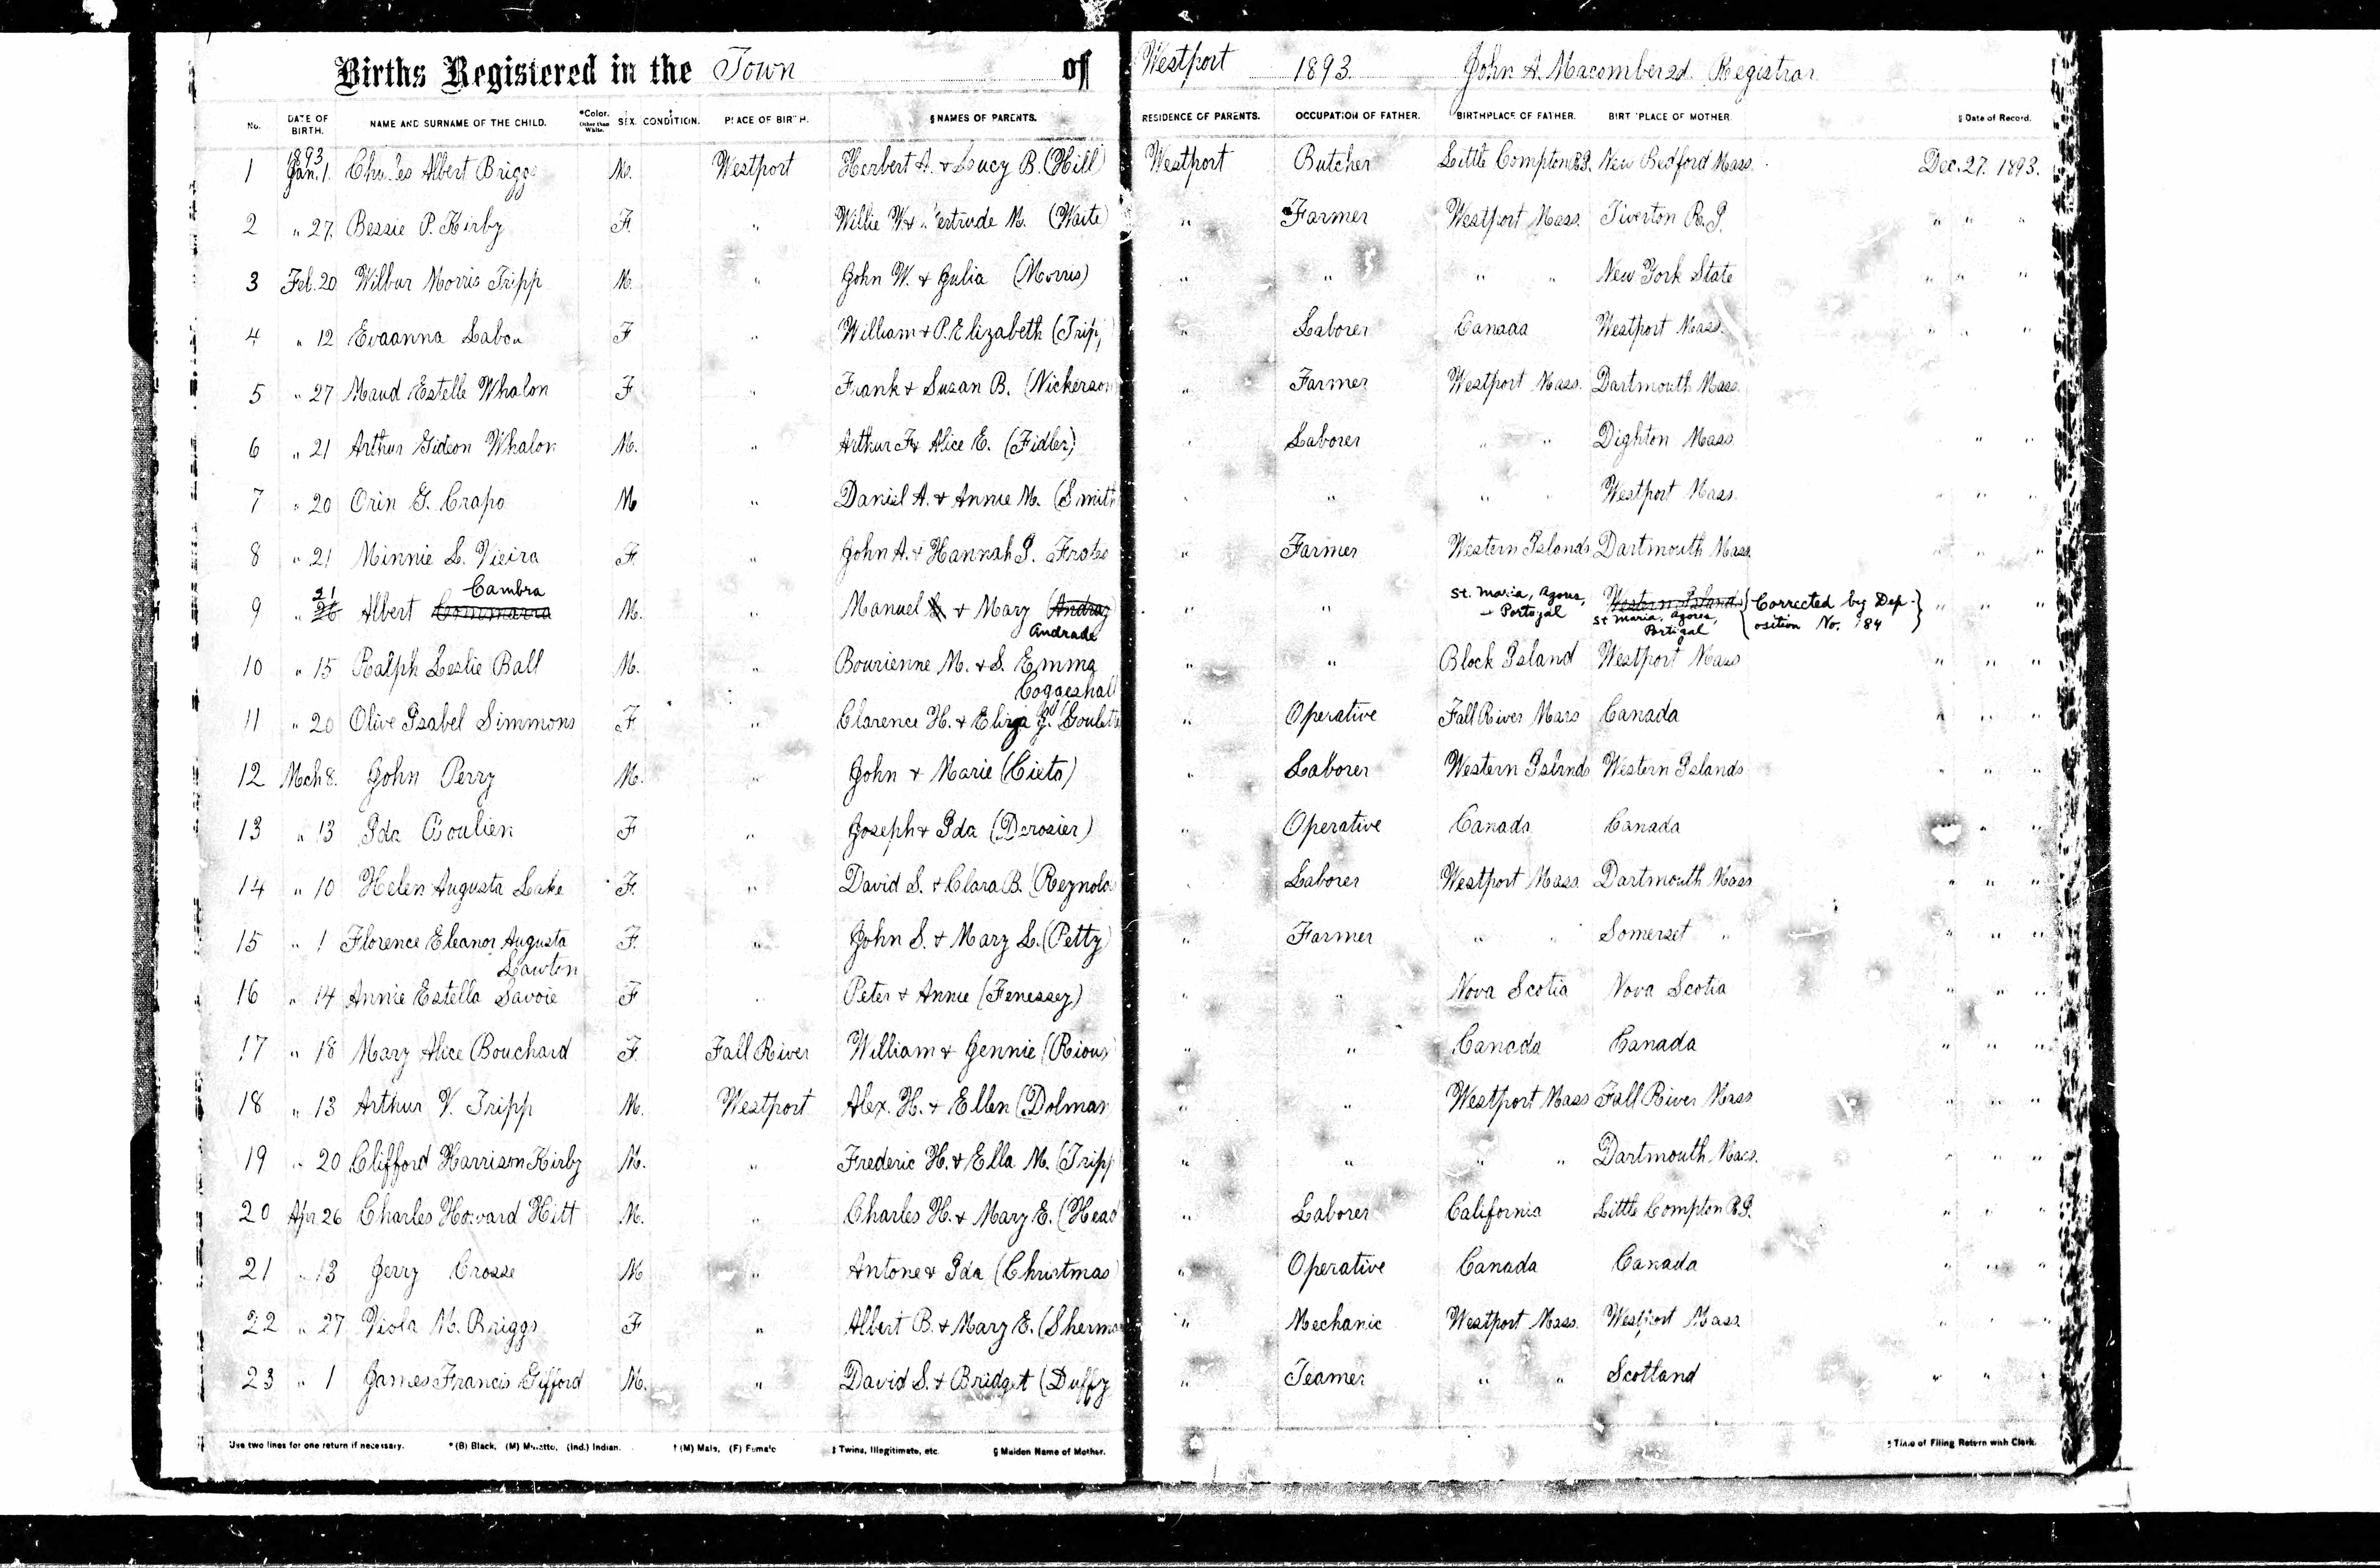 Births Registered in the Town of Westport 1893 John A. Macomber 2d. Registrar
No. DATE OF BIRTH. NAME AND SURNAME OF THE CHILD. *Color. Other than White. SEX. CONDITION. PLACE OF BIRTH. §NAMES OF PARENTS. RESIDENCE OF PARENTS. OCCUPATION OF FATHER. BIRTHPLACE OF FATHER. BIRTHPLACE OF MOTHER. Date of Record.
1893
1 Jan. 1. Charles Albert Briggs M. Westport Herbert A. & Lucy B. (Hill) Westport Butcher Little Compton R.I. New Bedford Mass. Dec. 27. 1893.
2 " 27. Bessie P. Kirby F. " Willie W. & Gertrude M. (Waite) " Farmer Westport Mass. Tiverton R.I. " " "
3 Feb. 20 Wilbur Morris Tripp M. " John W. & Julia (Morris) " " " " New York State " " "
4 " 12 Evaanna F " William & P. Elizabeth (Trip " Laborer Canada Westport Mass. " " "
5 " 27 Maud Estelle Whalon F " Frank & Susan B. (Nickerson " Farmer Westport Mass. Dartmouth Mass.
6 " 21 Arthur Gideon Whalon M. " Arthur F. & Alice E. (Fidler) " Laborer " " Dighton Mass. " "
7 " 20 Orin G. Crapo M " Daniel A. & Annie M. (Smith " " " " Westport Mass. " " "
8 " 21 Minnie L. Vieira F. " John A. & Hannah J. Frates " Farmer Western Islands Dartmouth Mass " " "
21 Cambra
9 " 26 Albert Cammarra M. " Manuel & Mary (Andraz " " St. Maria, Azores, Western Islands Corrected by Dep-
Andrade - Portogal St Maria, Azores, Portigal osition No. 184
10 " 15 Ralph Leslie Ball M. " Bourienne M. & S. Emma " " Block Island Westport Mass " " "
Coggeshall
11 " 20 Olive Isabel Simmons F. " Clarence H. & Eliza J. " Operative Fall River Mass Canada " " "
12 Mch 8. John Perry M. " John & Marie (Cieto) " Laborer Western Islands Western Islands " " "
13 " 13 Ida F " Joseph & Ida (Derosier) " Operative Canada Canada " "
14 " 10 Helen Augusta Lake F. " David S. & Clara B. (Reynolds " Laborer Westport Mass. Dartmouth Mass " " "
15 " 1 Florence Eleanor Augusta F. " John S. & Mary L. (Petty) " Farmer " " Somerset " " " "
Lawton
16 " 14 Annie Estella Savoie F " Peter & Annie (Fenessey) " " Nova Scotia Nova Scotia " " "
17 " 18 Mary Alice Bouchard F. Fall River William & Jennie (Rioux) " " Canada Canada " " "
18 " 13 Arthur V. Tripp M. Westport Alex. H. & Ellen (Dolman " " Westport Mass Fall River Mass " " "
19 " 20 Clifford Harrison Kirby M. " Frederic H. & Ella M. (Tripp " " " " Dartmouth Mass. " " "
20 Apr 26 Charles Howard Hitt M. " Charles H. & Mary E. (Head " Laborer California Little Compton R.I. " " "
21 " 13 Jerry Crosse M " Antone & Ida (Christmas) " Operative Canada Canada " " "
22 " 27 Viola M. Briggs F " Albert B. & Mary E. (Sherman " Mechanic Westport Mass. Westport Mass. " " "
23 " 1 James Francis Gifford M. " David S. & Bridget (Duffy " Teamer " " Scotland " " "
Use two lines for one return if necessary. *(B) Black, (M) Mulatto, (Ind.) Indian. †(M) Male, (F) Female ‡Twins, Illegitimate, etc. §Maiden Name of Mother. Time of Filing Return with Clerk.